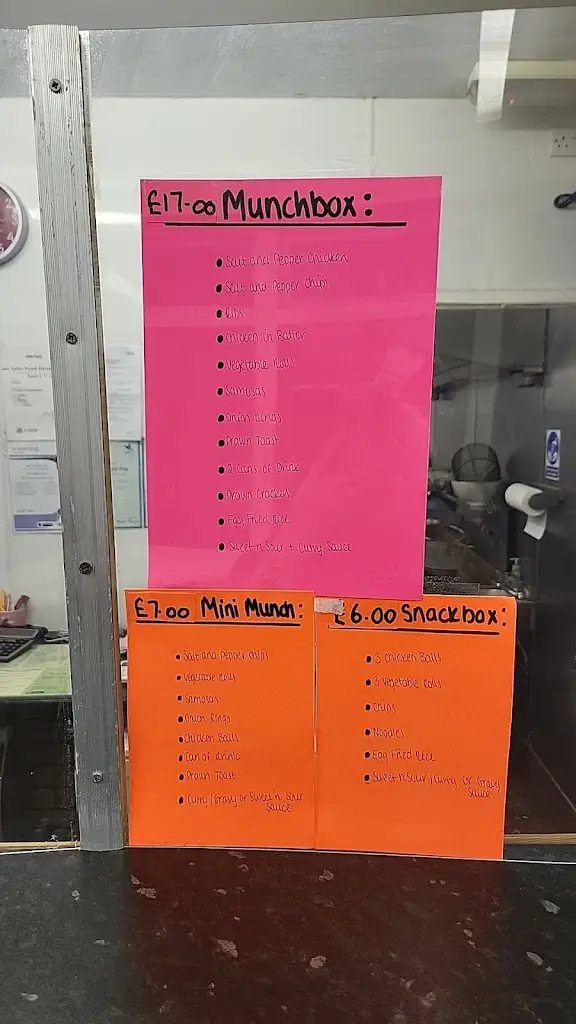 £17-00 Munchbox:
Salt and Pepper Chicken
Salt and Pepper Chips
Ribs
Chicken in Batter
Vegetable Rolls
Samosas
Onion Rings
Prawn Toast
Cans of Drink
Prawn Crackers
Egg Fried Rice
Sweet n Sour + Curry Sauce
£7.00 Mini Munch:
Salt and Pepper Chips
Vegetable Rolls
Samosas
Onion Rings
Chicken Balls
Can of drink
Prawn Toast
Curry / Gravy or Sweet n Sour
Sauce
£6.00 Snackbox:
3 Chicken Balls
3 Vegetable Rolls
Chips
Noodles
Egg Fried Rice
Sweet n Sour / Curry or Gravy
Sauce